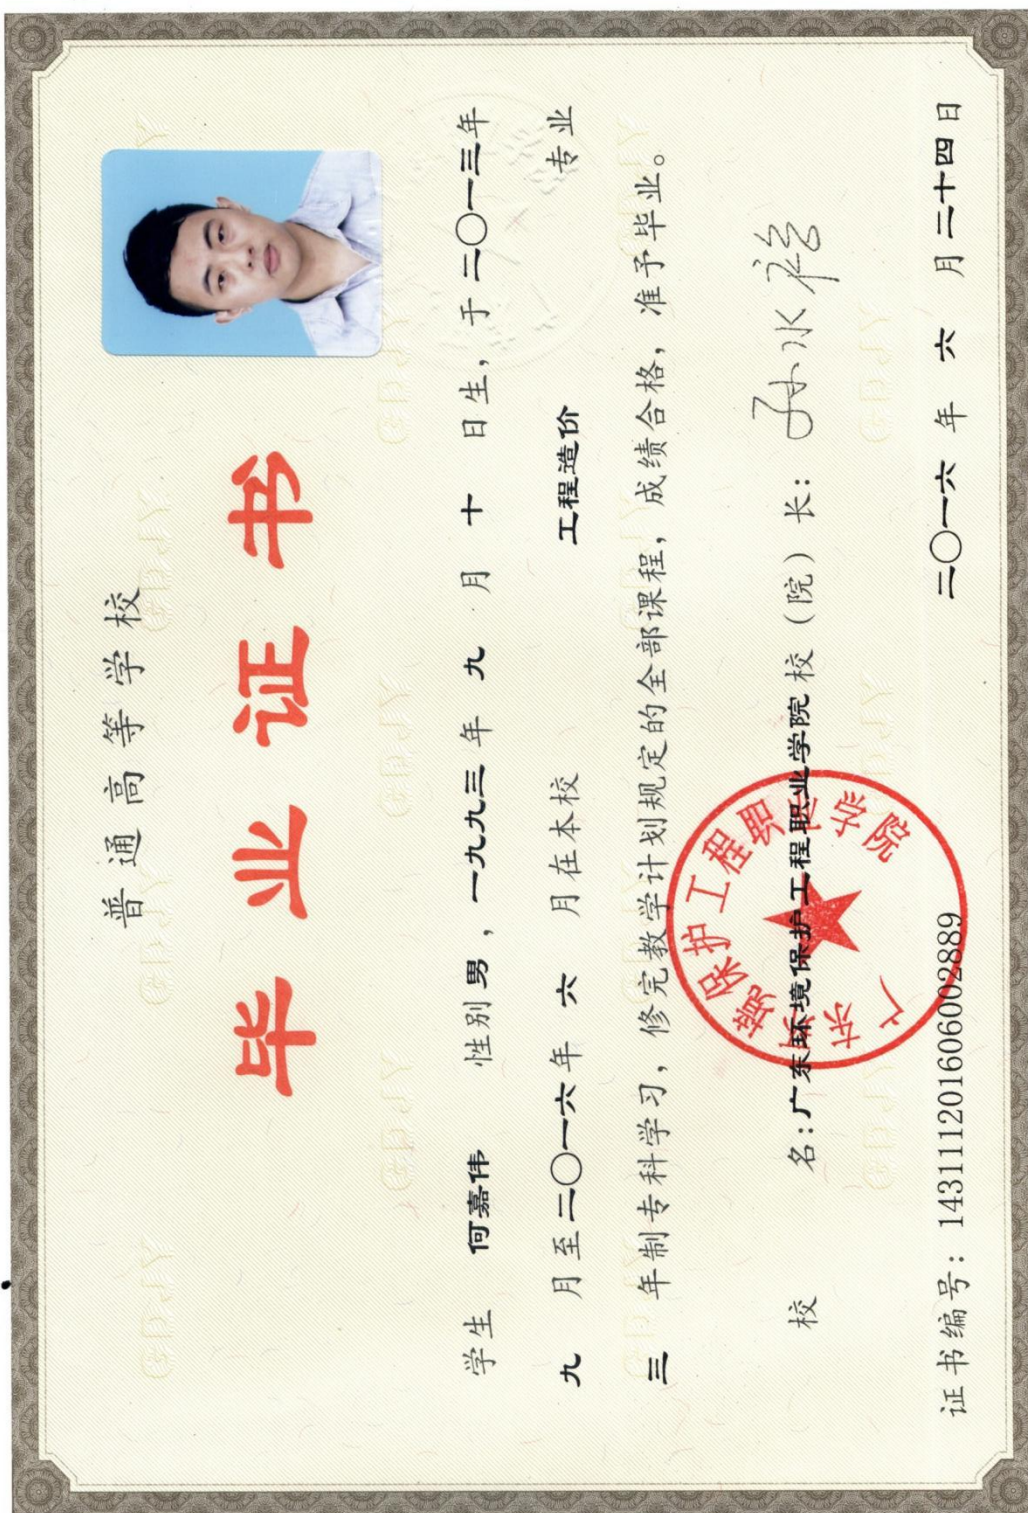 普通高等学校
毕业证书
学生 何嘉伟 性别 男，一九九三 年 九 月 十 日生，于 二〇一三 年
九 月至 二〇一六 年 六 月在本校 工程造价 专业
三 年制专科学习，修完教学计划规定的全部课程，成绩合格，准予毕业。
校 名：广东环境保护工程职业学院 校（院）长：孙水裕
广东环境保护工程职业学院
证书编号：143111201606002889 二〇一六 年 六 月 二十四 日